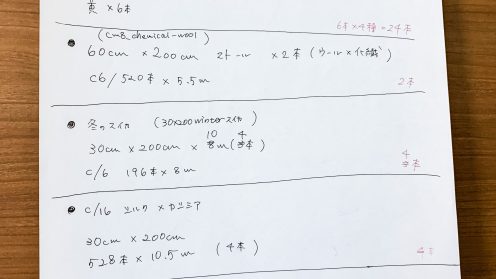 黄 × 6本
6本×4種=24本
(cm8_chemical-wool)
60cm × 200cm ストール × 2本 (ウール×化繊)
C6/520本 × 5.5m
2本
冬のスイカ (30x200winterスイカ)
10 4
30cm × 200cm × 8m(本)
4
C/6 196本 × 8m 本
C/16 シルク × カシミア
30cm × 200cm
528本 × 10.5m (4本)
4本